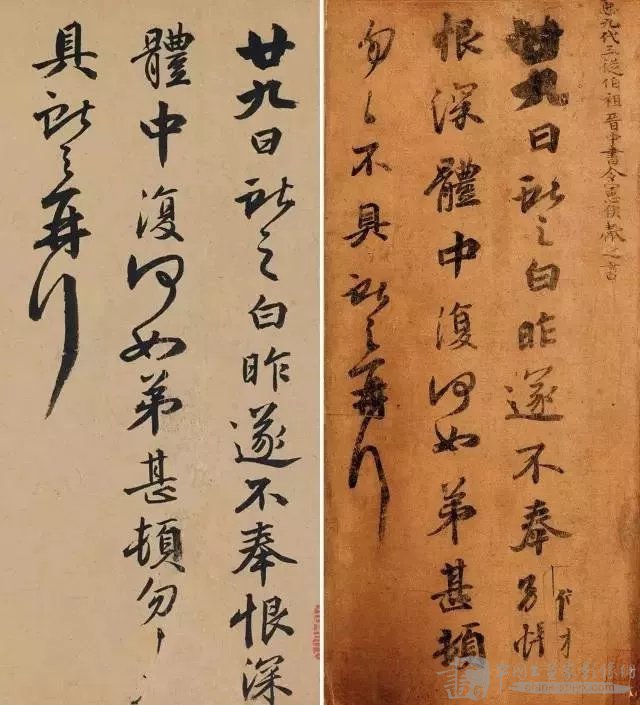 廿九日獻之白昨遂不奉恨深
體中復何如弟甚頓勿〻不
具獻之再拜
臣九代三從伯祖晉中書令憲侯獻之書
廿九日獻之白昨遂不奉別悵
恨深體中復何如弟甚頓
勿〻不具獻之再拜